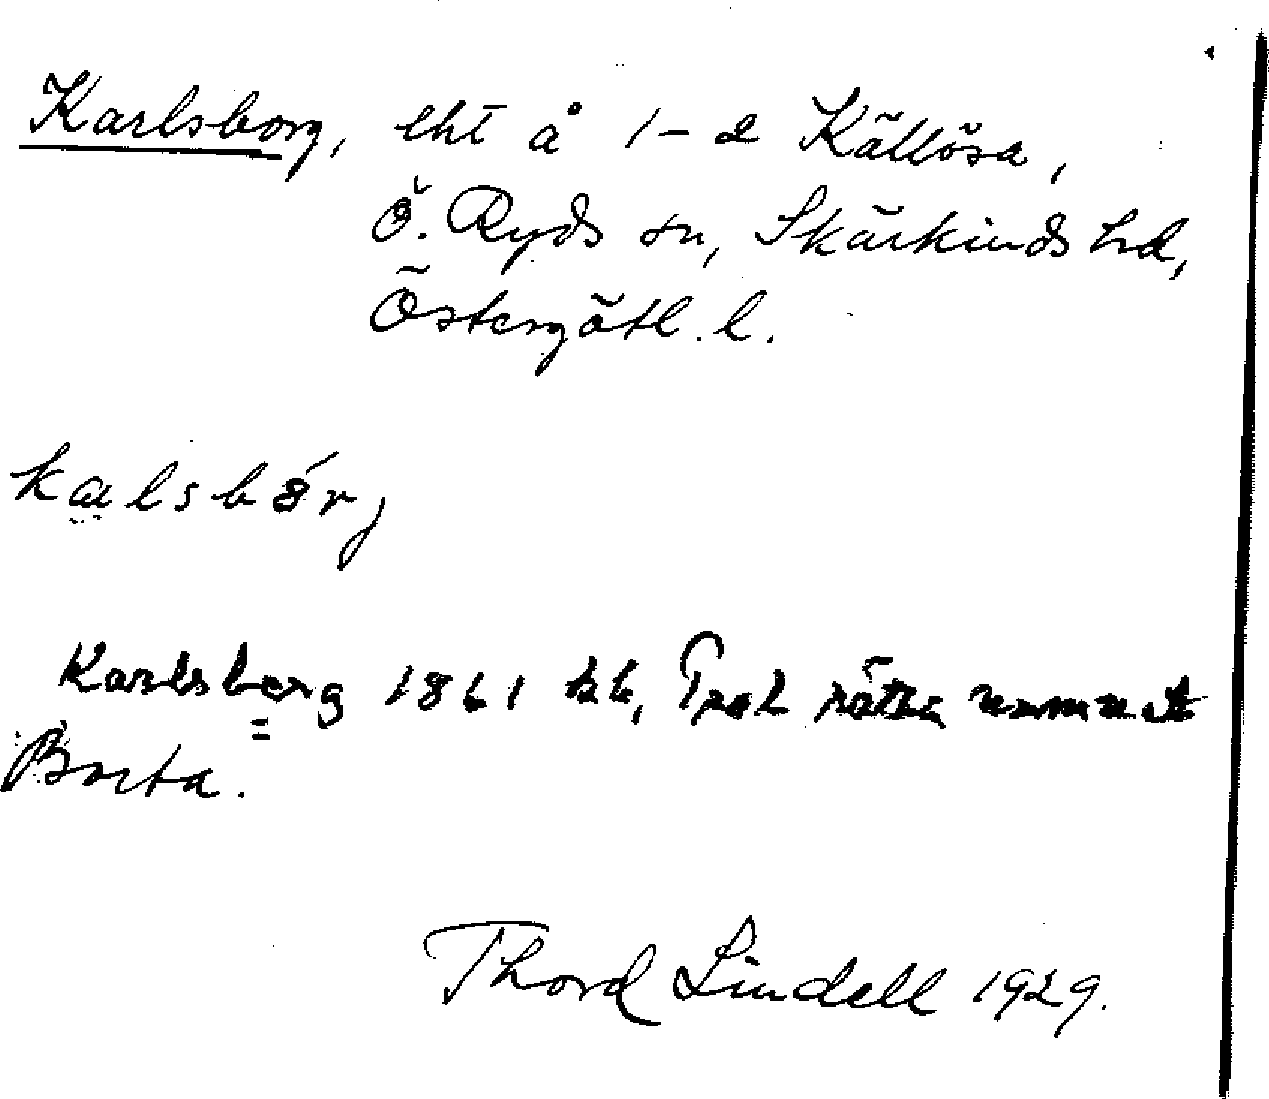 Karlsborg, lht å 1–2 Källösa,
Ö. Ryds sn, Skärkinds hd,
Östergötl. l.
kalsbǿrj
Karlsberg 1861 kb, Prol rätta namnet
Borta.
Thord Lindell 1929.